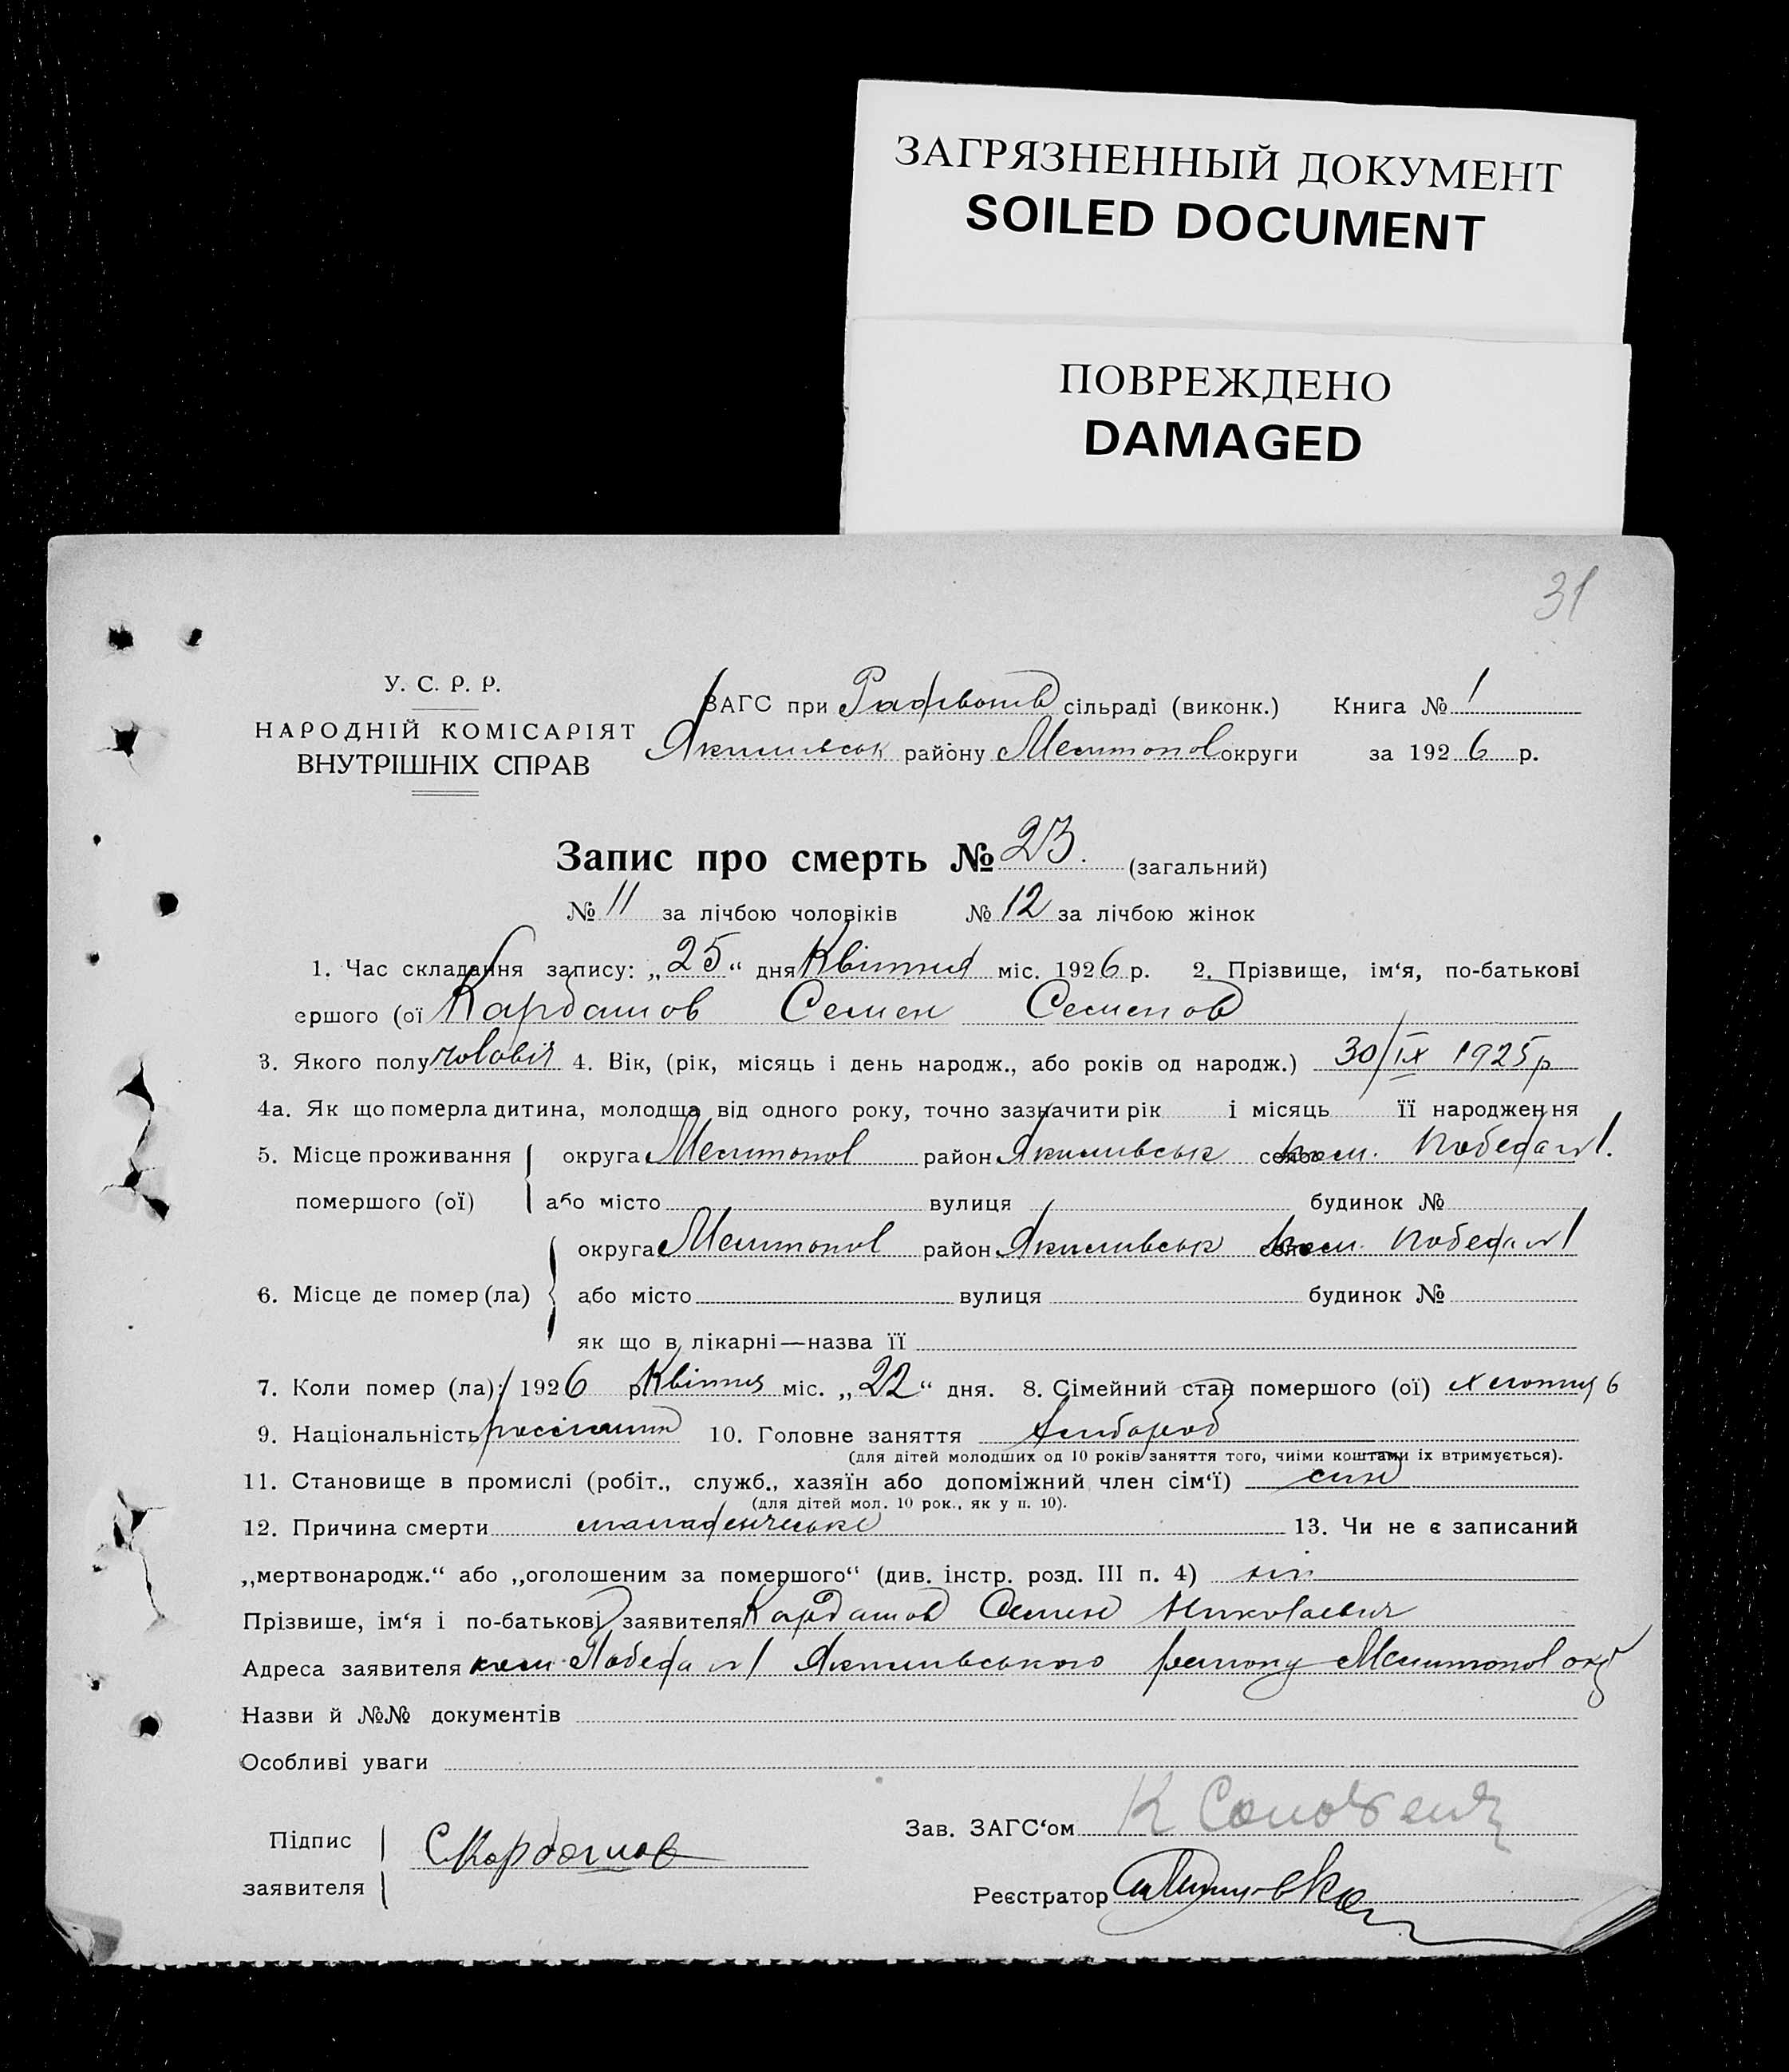 ЗАГРЯЗНЕННЫЙ ДОКУМЕНТ
SOILED DOCUMENT
ПОВРЕЖДЕНО
DAMAGED
31
У. С. Р. Р.
НАРОДНІЙ КОМІСАРІЯТ
ВНУТРІШНІХ СПРАВ
ЗАГС при сільраді (виконк.) Книга № 1
Якимівськ району Мелитопол округи за 1926 р.
Запис про смерть № 23. (загальний)
№ 11 за лічбою чоловіків № 12 за лічбою жінок
1. Час складання запису: „25“ дня Квітня міс. 1926 р. 2. Прізвище, ім‘я, по-батькові
ершого (ої Кардашов Семен Семенов
3. Якого полу чоловіч 4. Вік, (рік, місяць і день народж., або років од народж.) 30/IX 1925 р
4а. Як що померла дитина, молодща від одного року, точно зазначити рік і місяць її народження
5. Місце проживання округа Мелитопол район Якимівськ село Победа №1.
помершого (ої) або місто вулиця будинок №
округа Мелитопол район Якимівськ село Победа №1
6. Місце де помер (ла) або місто вулиця будинок №
як що в лікарні—назва її
7. Коли помер (ла): 1926 р Квітня міс. „22“ дня. 8. Сімейний стан помершого (ої)
9. Національність 10. Головне заняття хлібороб
(для дітей молодших од 10 років заняття того, чиїми коштами їх втримується).
11. Становище в промислі (робіт., служб., хазяїн або допоміжний член сім‘ї) син
(для дітей мол. 10 рок., як у п. 10).
12. Причина смерти 13. Чи не є записаний
„мертвонародж.“ або „оголошеним за помершого“ (див. інстр. розд. III п. 4) ні
Прізвище, ім‘я і по-батькові заявителя Кардашов Семен Николаевич
Адреса заявителя Победа №1 Якимівського району Мелитопол окр
Назви й №№ документів
Особливі уваги
Підпис заявителя СКардашов
Зав. ЗАГС‘ом
Реєстратор